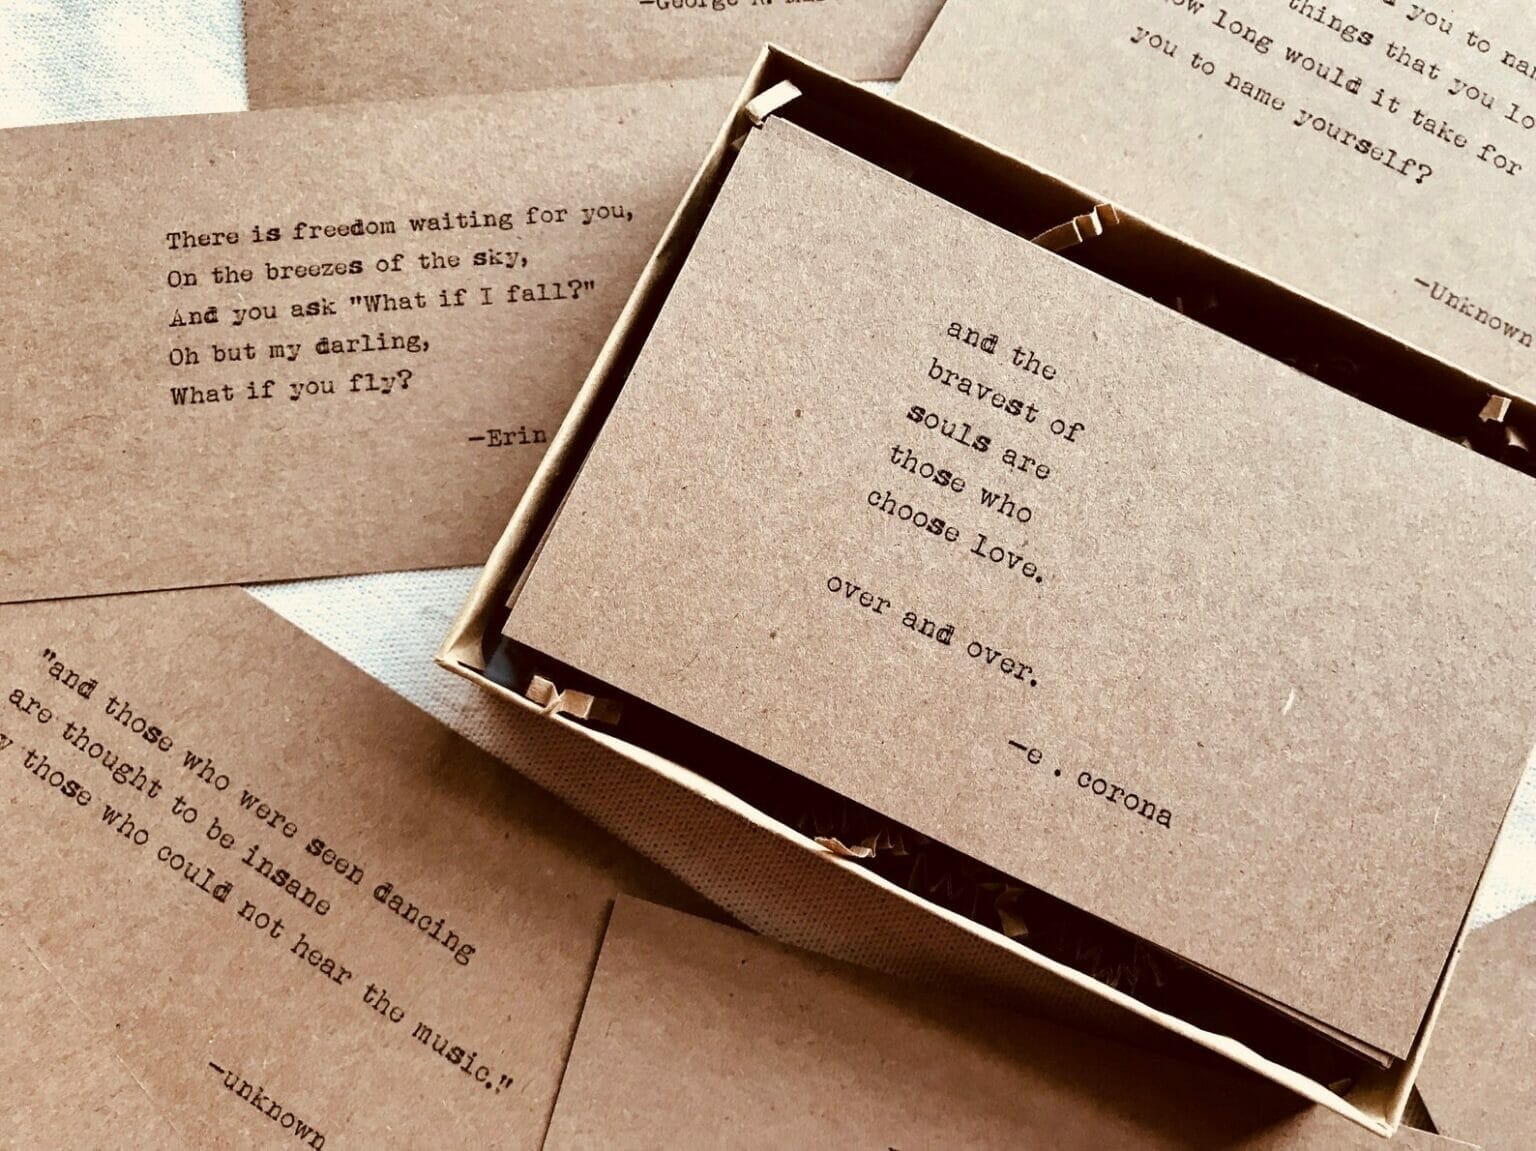 —George R.
There is freedom waiting for you,
On the breezes of the sky,
And you ask "What if I fall?"
Oh but my darling,
What if you fly?
—Erin
you to
things that you
long would it take for
you to name yourself?
—Unknown
and the
bravest of
souls are
those who
choose love.
over and over.
—e . corona
"and those who were seen dancing
are thought to be insane
those who could not hear the music."
—unknown